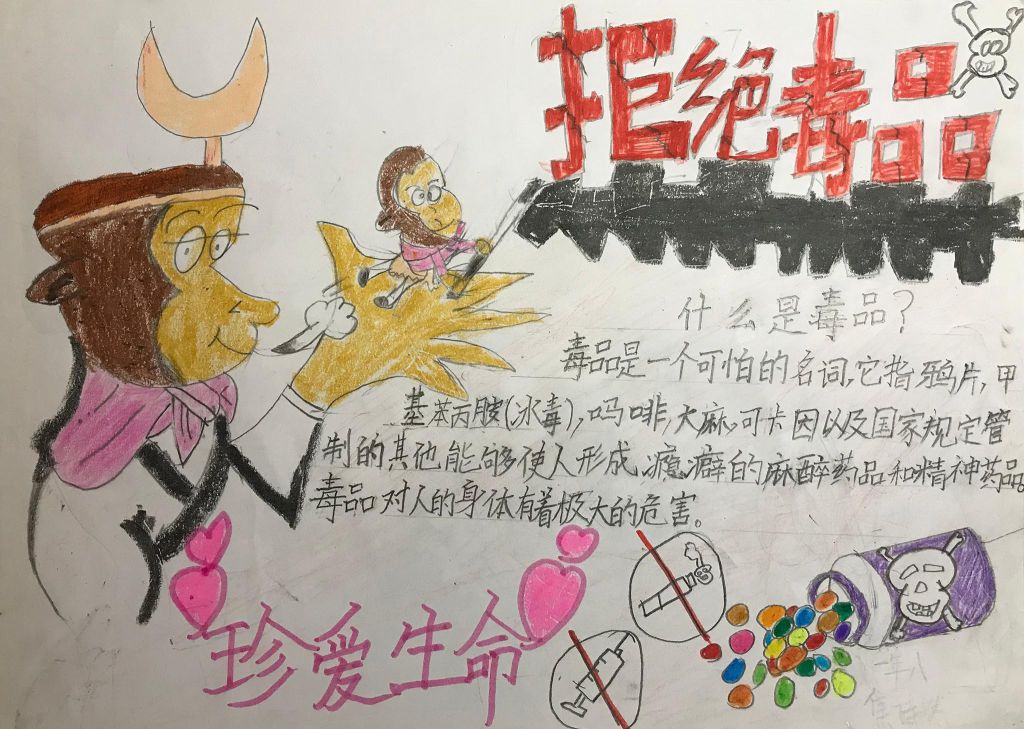 拒绝毒品
什么是毒品?
毒品是一个可怕的名词,它指鸦片,甲
基苯丙胺(冰毒),吗啡,大麻,可卡因以及国家规定管
制的其他能够使人形成瘾癖的麻醉药品和精神药品。
毒品对人的身体有着极大的危害。
珍爱生命